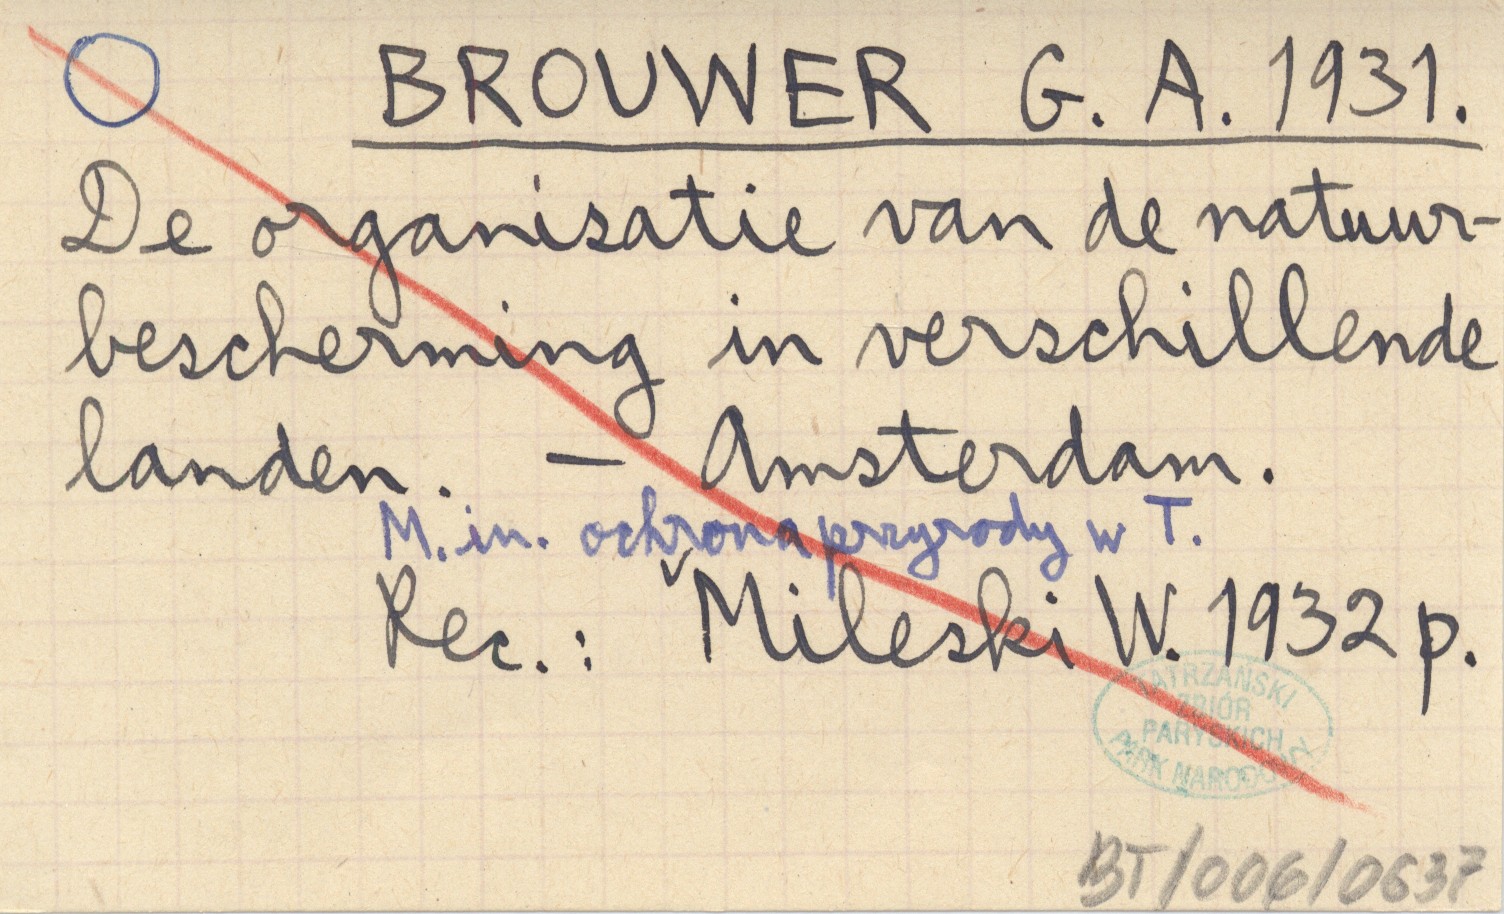 BROUWER G. A. 1931.
De organisatie van de natuur-
bescherming in verschillende
landen. — Amsterdam.
M. in. ochrona przyrody w T.
Rec.: Mileski W. 1932 p.
TATRZAŃSKI
ZBIÓR
PARYSKICH
PARK NARODOWY
BT/006/0637